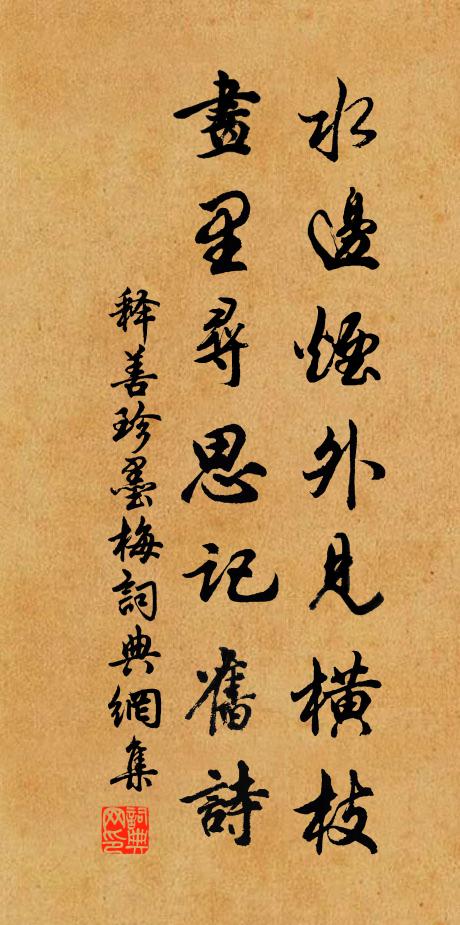 水邊煙外見橫枝
畫里尋思記舊詩
释善珍墨梅詞典網集
詞典网印